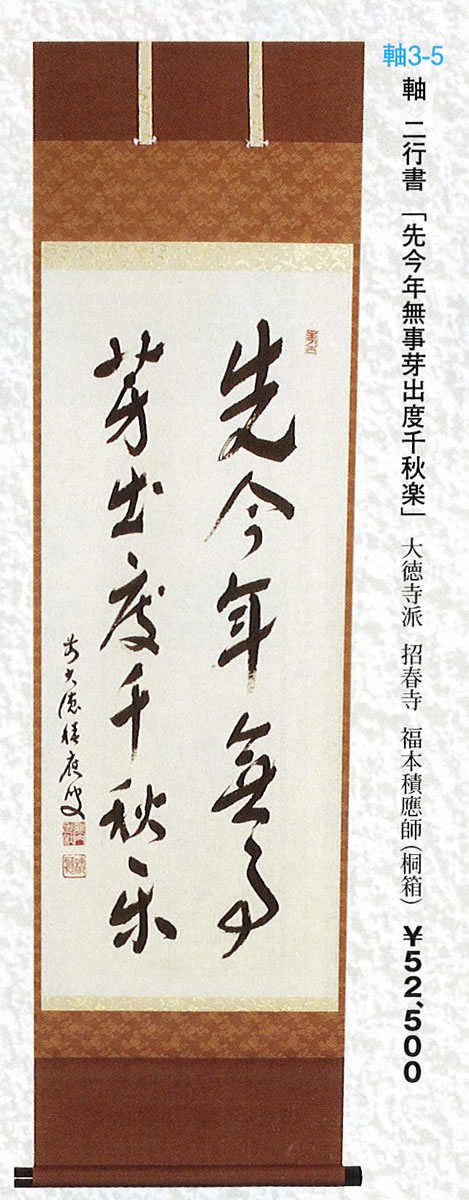 軸3-5
軸 二行書 「先今年無事芽出度千秋楽」 大徳寺派 招春寺 福本積應師(桐箱) ¥52,500
先今年無事
芽出度千秋楽
前大徳積應叟